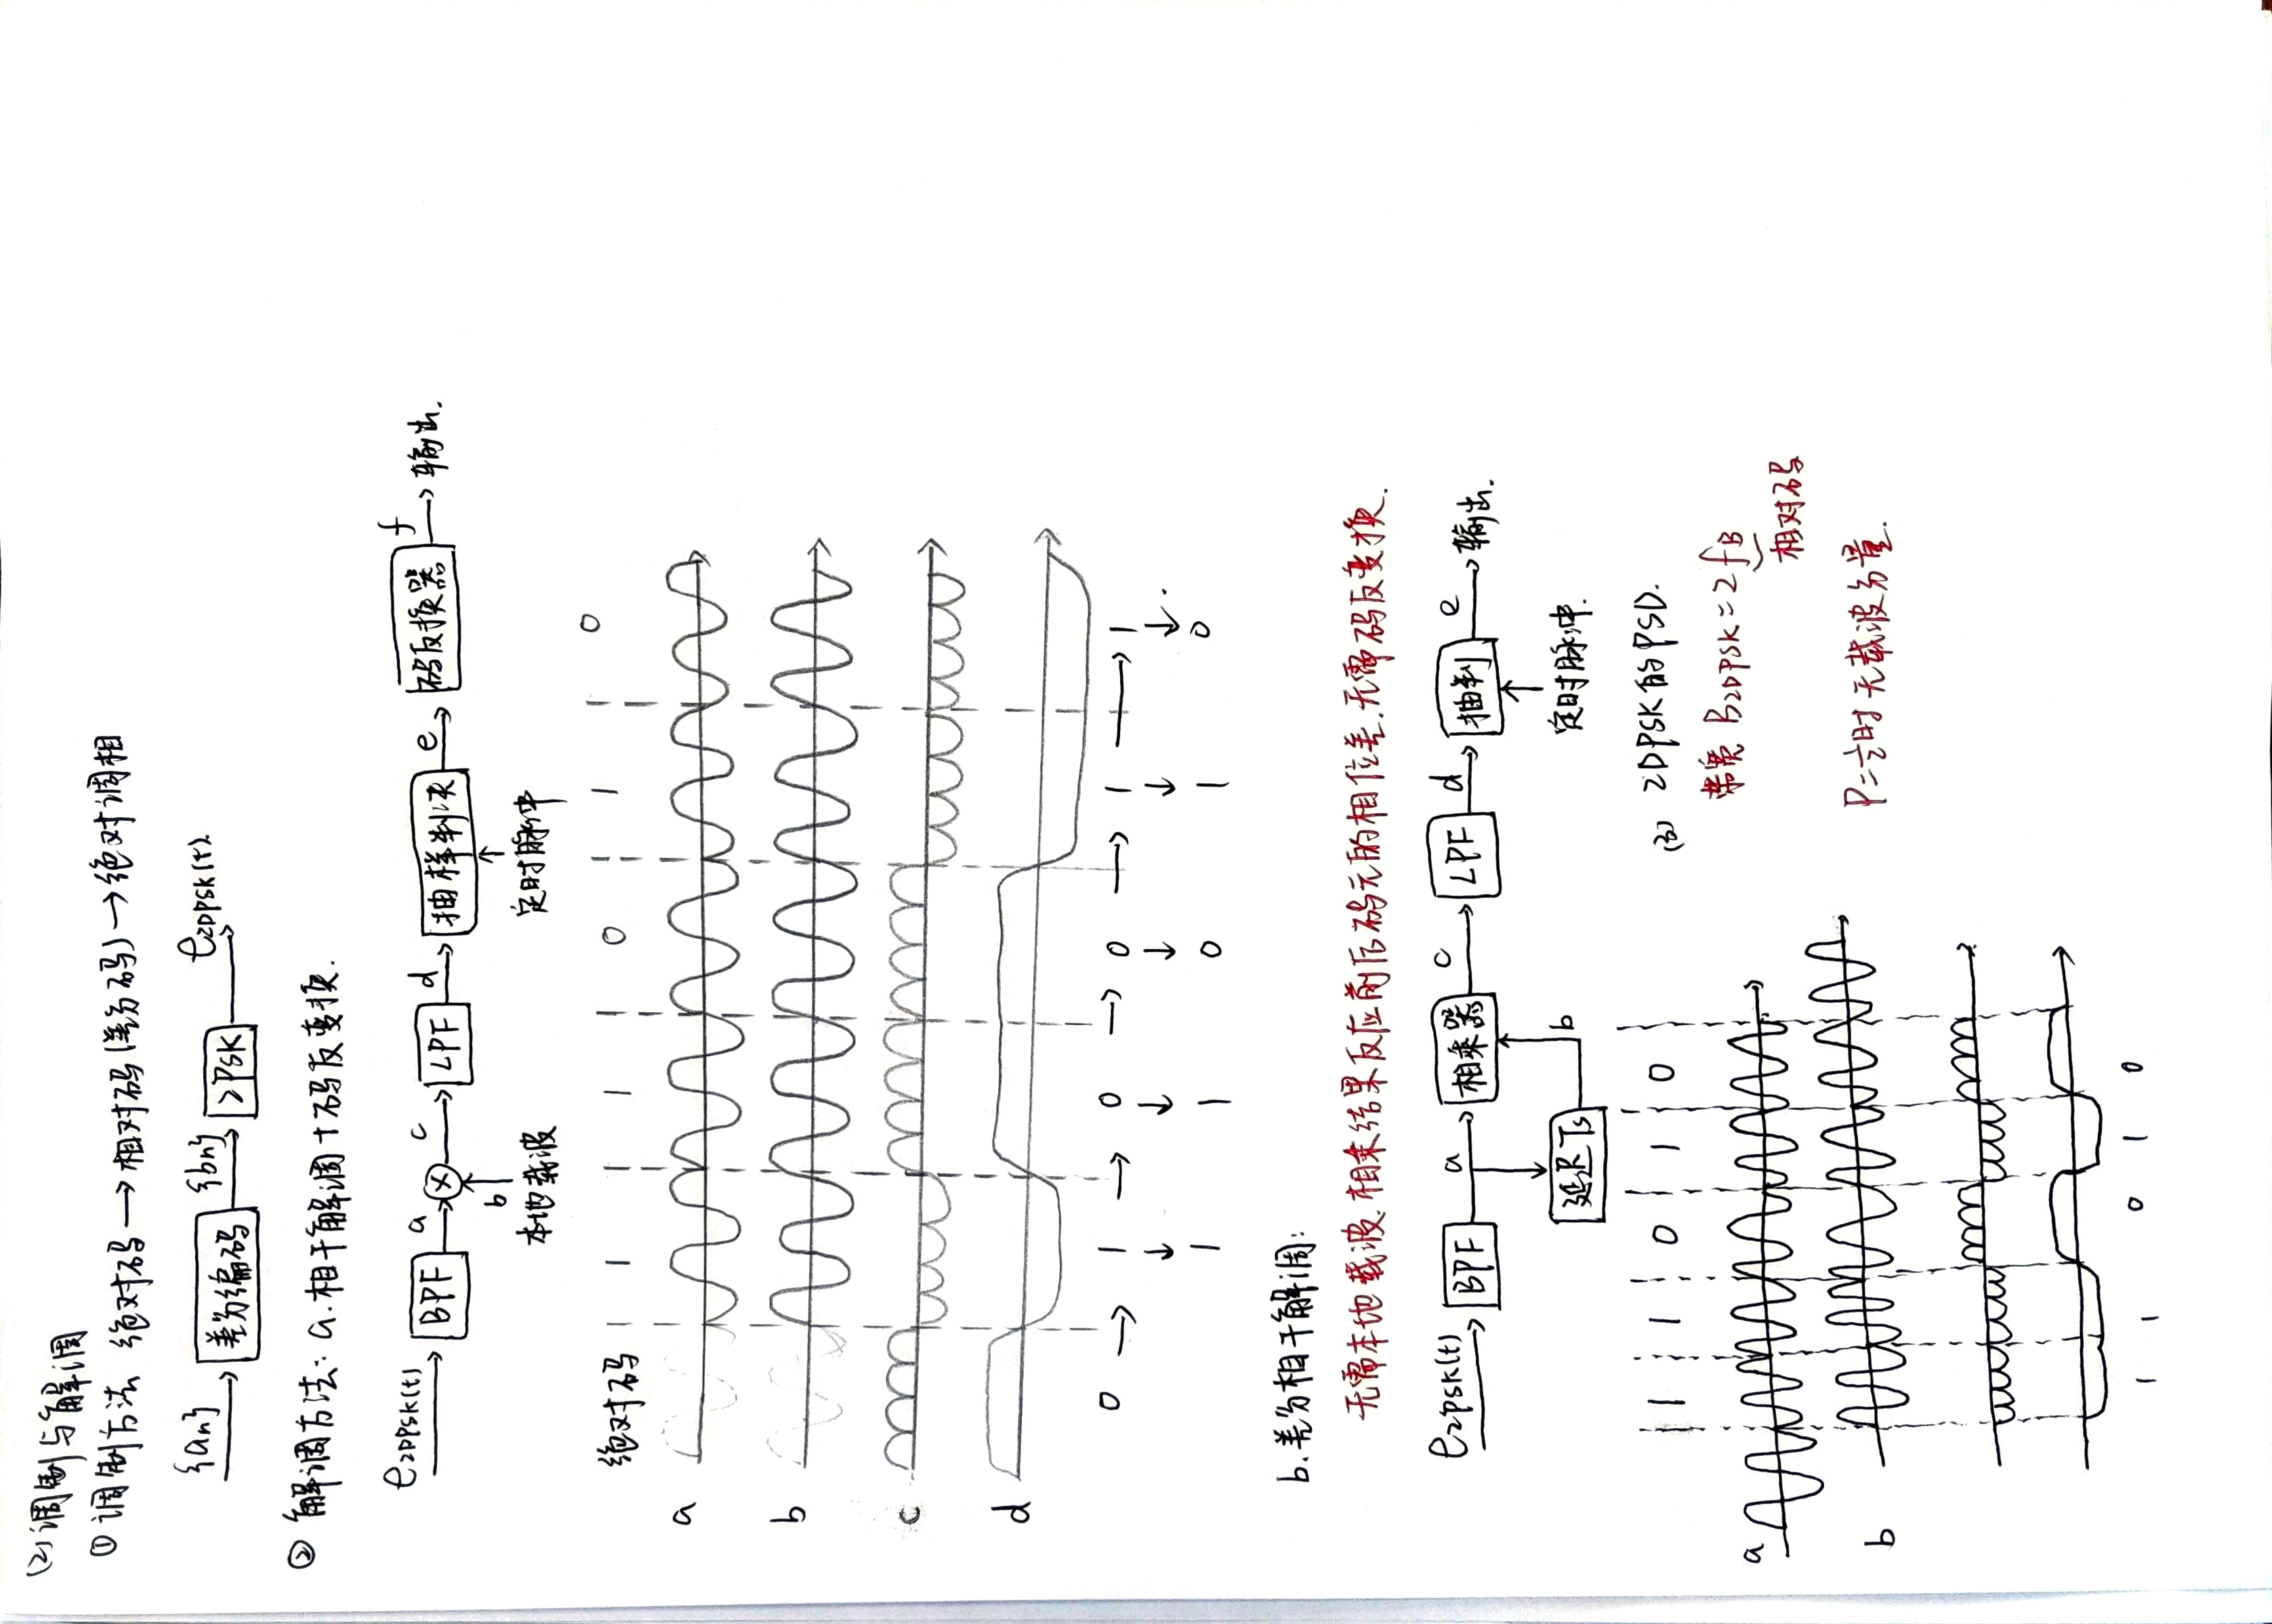 (2) 调制与解调
① 调制方法 绝对码→相对码(差分码)→绝对调相
{an} 差分编码 {bn} 2PSK e2DPSK(t).
② 解调方法: a.相干解调+码反变换.
e2DPSK(t) BPF a × c LPF d 抽样判决 e 码反换器 f 输出.
b
本地载波 定时脉冲
绝对码 1 1 0 1 0
a
b
c
d
0 → 1 → 0 → 0 → 1 → 1
↓ ↓ ↓ ↓ ↓
1 1 0 1 0
b.差分相干解调:
无需本地载波.相乘结果反应前后码元的相位差.无需码反变换.
e2PSK(t) BPF a 相乘器 c LPF d 抽判 e 输出.
延迟Ts b 定时脉冲.
1 1 0 1 0
(3) 2DPSK的PSD.
带宽 B2DPSK=2fB
相对码
P=½时无载波分量.
a
b
1 1 0 1 0